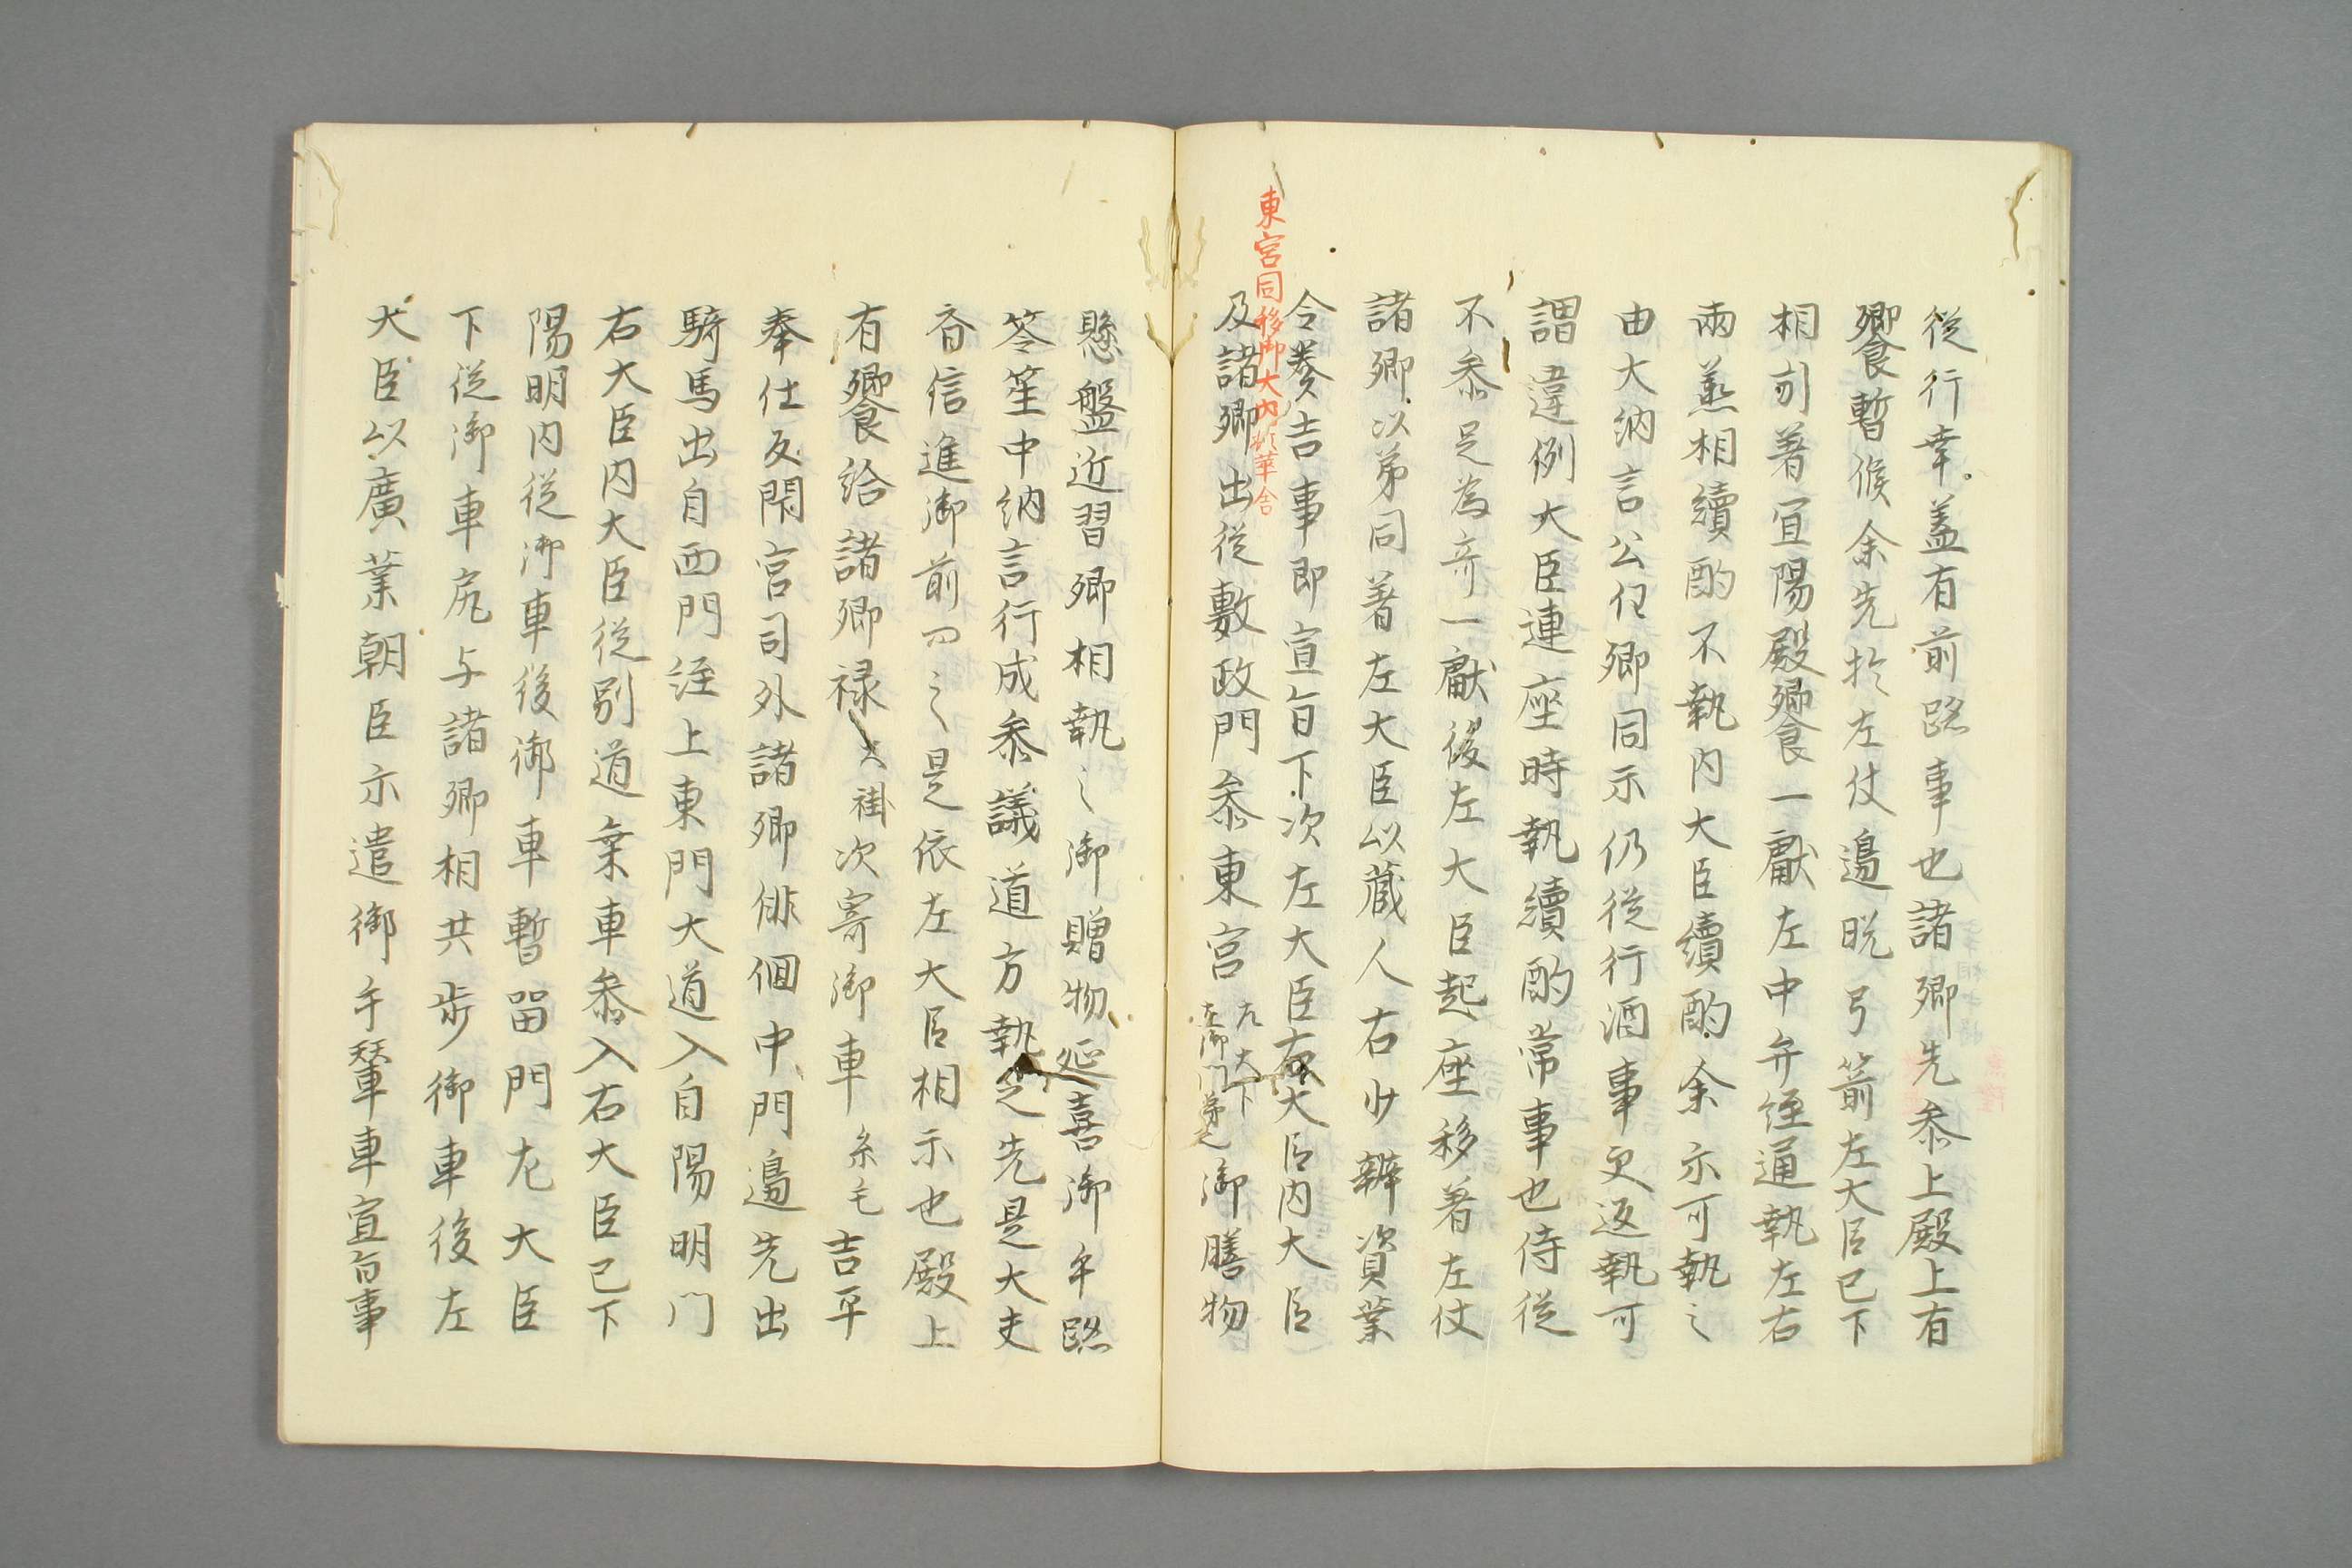 従行幸蓋有前跡事也諸卿先参上殿上有
饗暫候余先於左仗邉脱弓箭左大臣已下
相引著宜陽殿饗一獻左中弁経通執左右
兩盃相續酌不執内大臣續酌余示可執之
由大納言公任卿同示仍従行酒事更返執可
謂違例大臣連座時執續酌常事也侍従
不参足為奇一獻後左大臣起座移著左仗
諸卿以第同著左大臣以蔵人右少辨資業
令奏吉事即宣旨下次左大臣右大臣内大臣
東宮同移御大内凝華舎
及諸卿出従敷政門参東宮 御膳物
懸盤近習卿相執之御贈物延喜御手跡
笒笙中納言行成参議道方執之先是大夫
斉信進御前四之是依左大臣相示也殿上
有饗給諸卿禄大褂次寄御車糸毛吉平
奉仕反閇宮司外諸卿徘徊中門邉先出
騎馬出自西門経上東門大道入自陽明門
右大臣内大臣従別道乗車参入右大臣已下
陽明内従御車後御車暫留門左大臣
下従御車尻与諸卿相共歩御車後左
大臣以廣業朝臣示遣御手輦車宣旨事